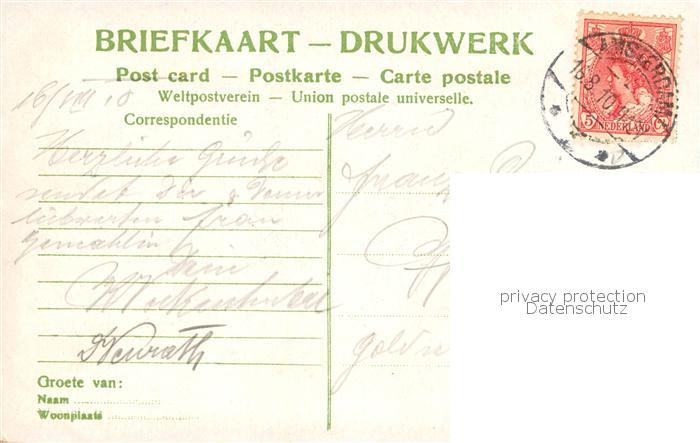 BRIEFKAART — DRUKWERK
Post card — Postkarte — Carte postale
Weltpostverein — Union postale universelle.
Correspondentie
16/VIII 10
Herrn
Herzliche Grüße
sendet Dir & Deiner
liebwerten Frau
Gemahlin
Dein
Neurath
Groete van:
Naam
Woonplaats
AMSTERDAM
16.8.10
5 NEDERLAND C
privacy protection
Datenschutz